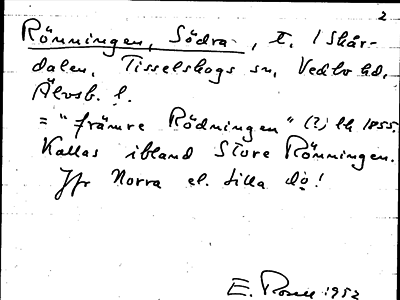 2
Rönningen, Södra, t. 1 Skår-
dalen, Tisselskogs sn, Vedbo hd,
Älvsb. l.
= "främre Rödningen" (?) lh 1855.
Kallas ibland Store Rönningen.
Jfr Norra el. Lilla do!
E. 1952